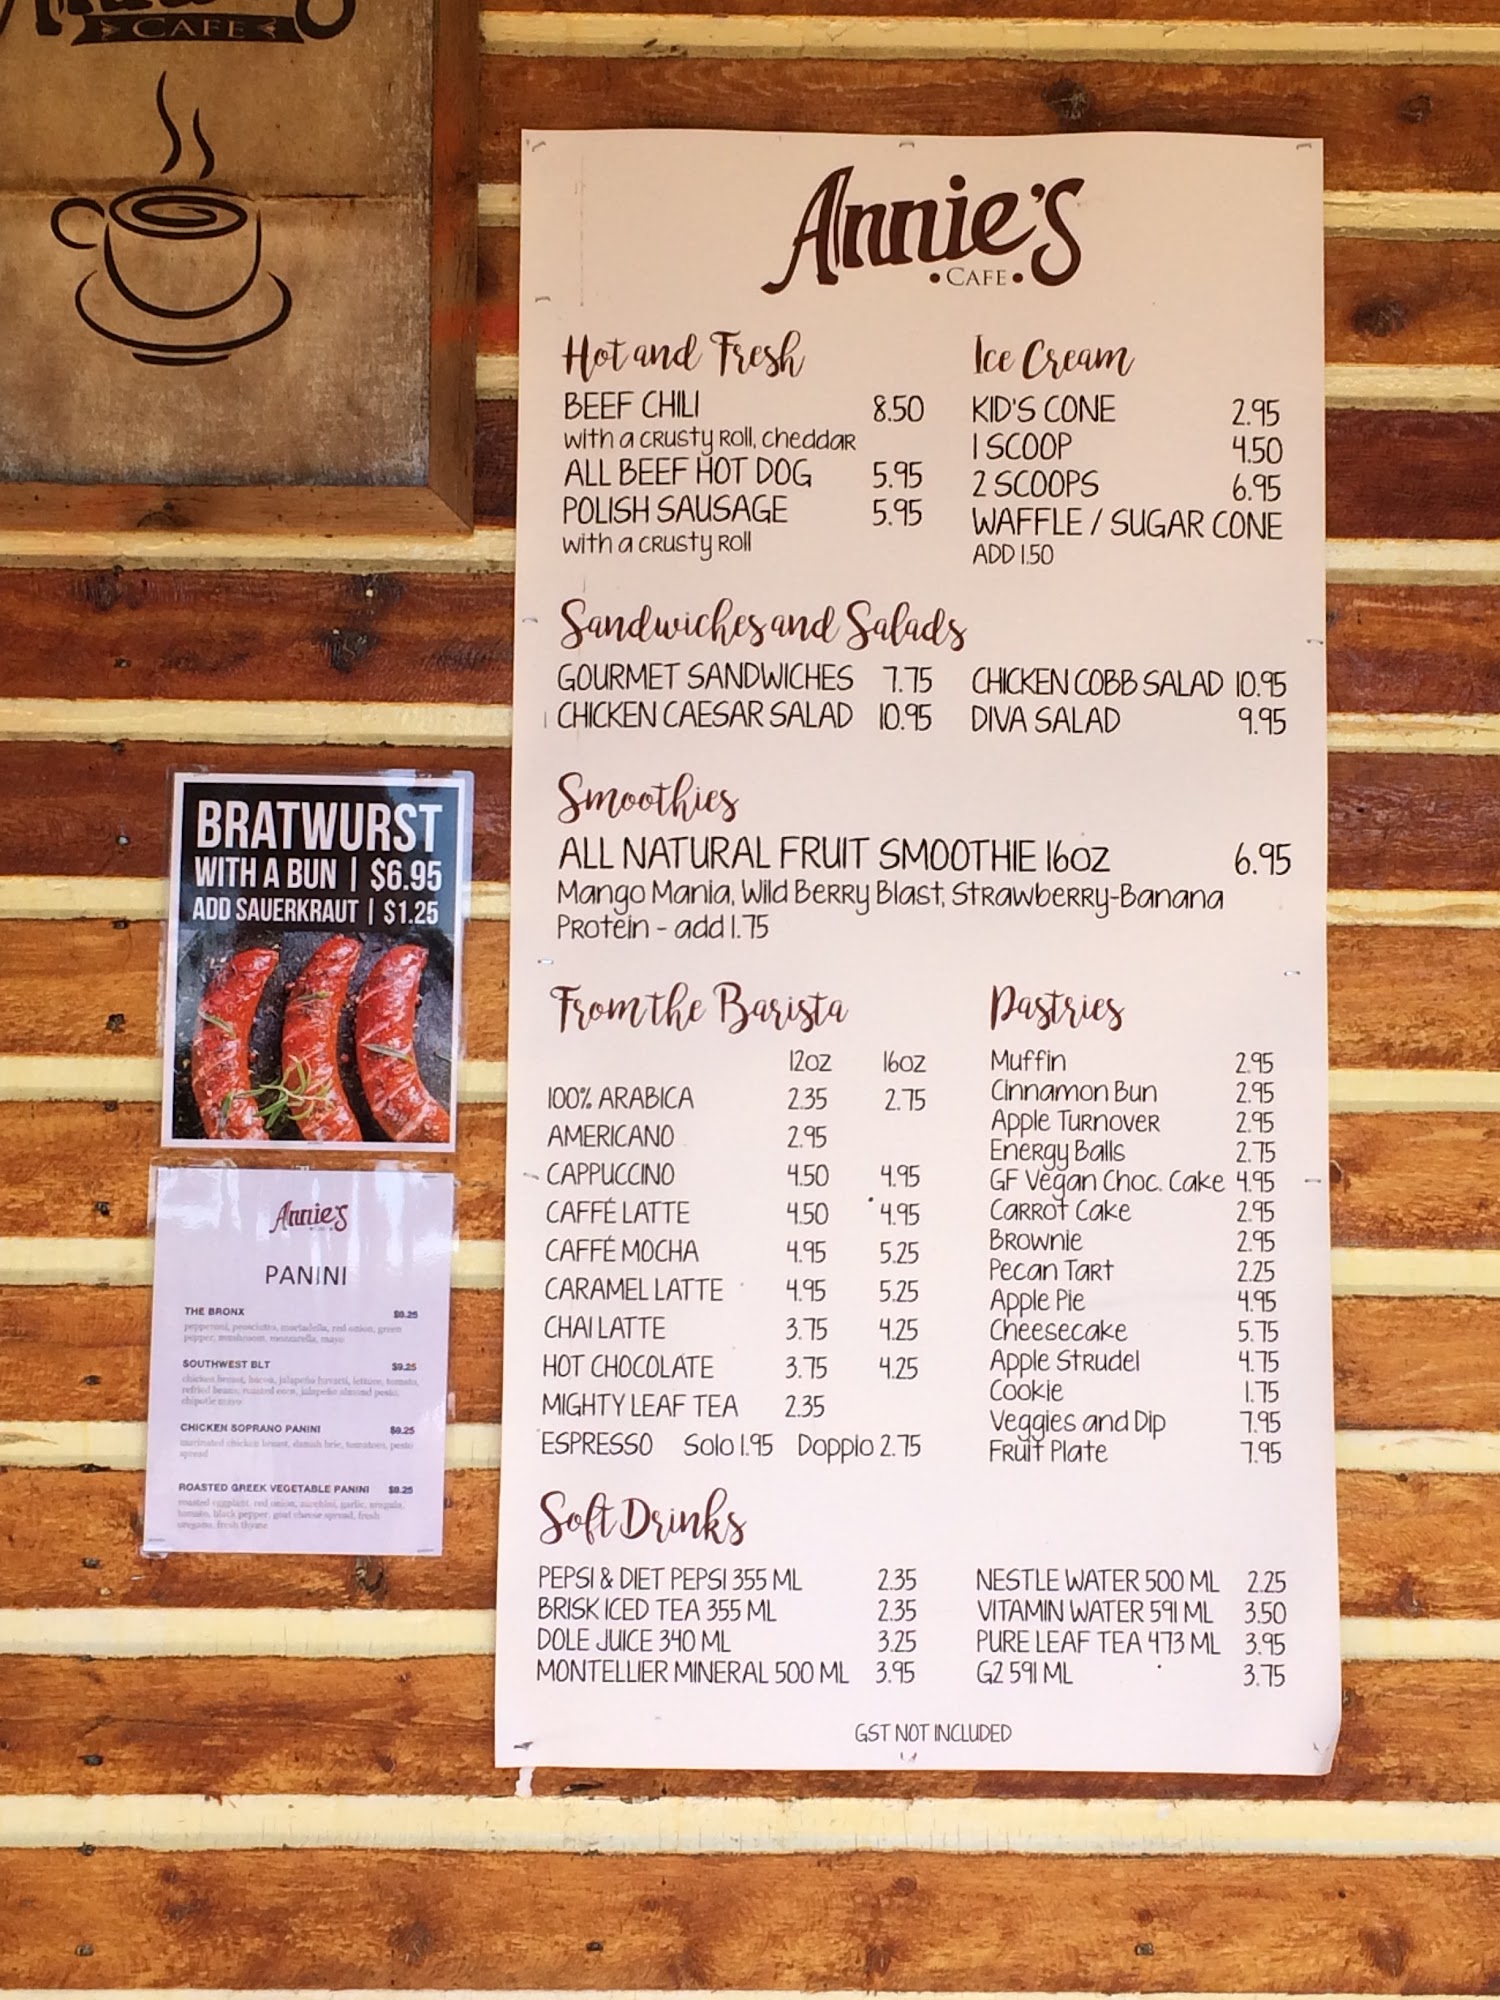 CAFE
Annie's
CAFE
Hot and Fresh
BEEF CHILI 8.50
with a crusty roll, cheddar
ALL BEEF HOT DOG 5.95
POLISH SAUSAGE 5.95
with a crusty roll
Ice Cream
KID'S CONE 2.95
1 SCOOP 4.50
2 SCOOPS 6.95
WAFFLE / SUGAR CONE
ADD 1.50
Sandwiches and Salads
GOURMET SANDWICHES 7.75
CHICKEN CAESAR SALAD 10.95
CHICKEN COBB SALAD 10.95
DIVA SALAD 9.95
Smoothies
ALL NATURAL FRUIT SMOOTHIE 16OZ 6.95
Mango Mania, Wild Berry Blast, Strawberry-Banana
Protein - add 1.75
From the Barista
12OZ 16OZ
100% ARABICA 2.35 2.75
AMERICANO 2.95
CAPPUCCINO 4.50 4.95
CAFFÉ LATTE 4.50 4.95
CAFFÉ MOCHA 4.95 5.25
CARAMEL LATTE 4.95 5.25
CHAI LATTE 3.75 4.25
HOT CHOCOLATE 3.75 4.25
MIGHTY LEAF TEA 2.35
ESPRESSO Solo 1.95 Doppio 2.75
Pastries
Muffin 2.95
Cinnamon Bun 2.95
Apple Turnover 2.95
Energy Balls 2.75
GF Vegan Choc. Cake 4.95
Carrot Cake 2.95
Brownie 2.95
Pecan Tart 2.25
Apple Pie 4.95
Cheesecake 5.75
Apple Strudel 4.75
Cookie 1.75
Veggies and Dip 7.95
Fruit Plate 7.95
Soft Drinks
PEPSI & DIET PEPSI 355 ML 2.35
BRISK ICED TEA 355 ML 2.35
DOLE JUICE 340 ML 3.25
MONTELLIER MINERAL 500 ML 3.95
NESTLE WATER 500 ML 2.25
VITAMIN WATER 591 ML 3.50
PURE LEAF TEA 473 ML 3.95
G2 591 ML 3.75
GST NOT INCLUDED
BRATWURST
WITH A BUN | $6.95
ADD SAUERKRAUT | $1.25
Annie's
PANINI
THE BRONX $9.25
pepperoni, prosciutto, mortadella, red onion, green
pepper, mushroom, mozzarella, mayo
SOUTHWEST BLT $9.25
chicken breast, bacon, jalapeño havarti, lettuce, tomato,
refried beans, roasted corn, jalapeño almond pesto,
chipotle mayo
CHICKEN SOPRANO PANINI $9.25
marinated chicken breast, danish brie, tomatoes, pesto
spread
ROASTED GREEK VEGETABLE PANINI $9.25
roasted eggplant, red onion, zucchini, garlic, arugula,
tomato, black pepper, goat cheese spread, fresh
oregano, fresh thyme